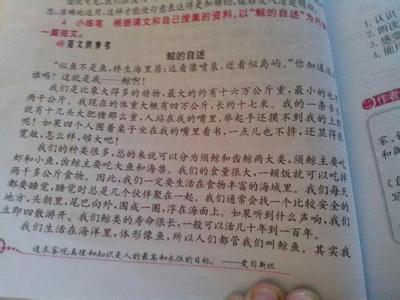 思、准确地运用,这样才能使句意表达得更加
4 小练笔 根据课文和自己搜集的资料,以“鲸的自述”为内容
一篇短文。
范文供参考
鲸的自述
“似鱼不是鱼,终生海里居;远看像喷泉,近看似岛屿。”你知道
谁吗?这就是我——鲸啊!
我们是比象大得多的动物,最大的约有十六万公斤重,最小的也
两千公斤。我现在的体重大概有四万公斤,长约十七米。我的一条舌
就有十几头大肥猪那么重,人站在我的嘴里,举起手还摸不到我的上腭
呢!如果四个人围着桌子坐在我的嘴里看书,一点儿也不挤,还显得很
宽敞,怎么样,够大吧!
我们的种类很多,总的来说可以分为须鲸和齿鲸两大类,须鲸主要吃
虾和小鱼;齿鲸主要吃大鱼和海兽。我们的食量很大,一顿饭就可以吃掉
两千多公斤食物。因此,我们一定要生活在食物丰富的海域里。我们每天
都要睡觉,睡觉时总是几个伙伴聚在一起。我们通常会找一个比较安全的
地方,头朝里,尾巴向外,围成一圈,浮在海面上。如果听到什么声响,我们
立即四散游开。我们鲸类的寿命很长,一般可以活几十年到一百年。
我们生活在海洋里,体形像鱼,所以人们都管我们叫鲸鱼。其实我
追求客观真理和知识是人的最高和永恒的目标。——爱因斯坦
1. 认识
2. 朗读
3. 感受
4. 能用
作者